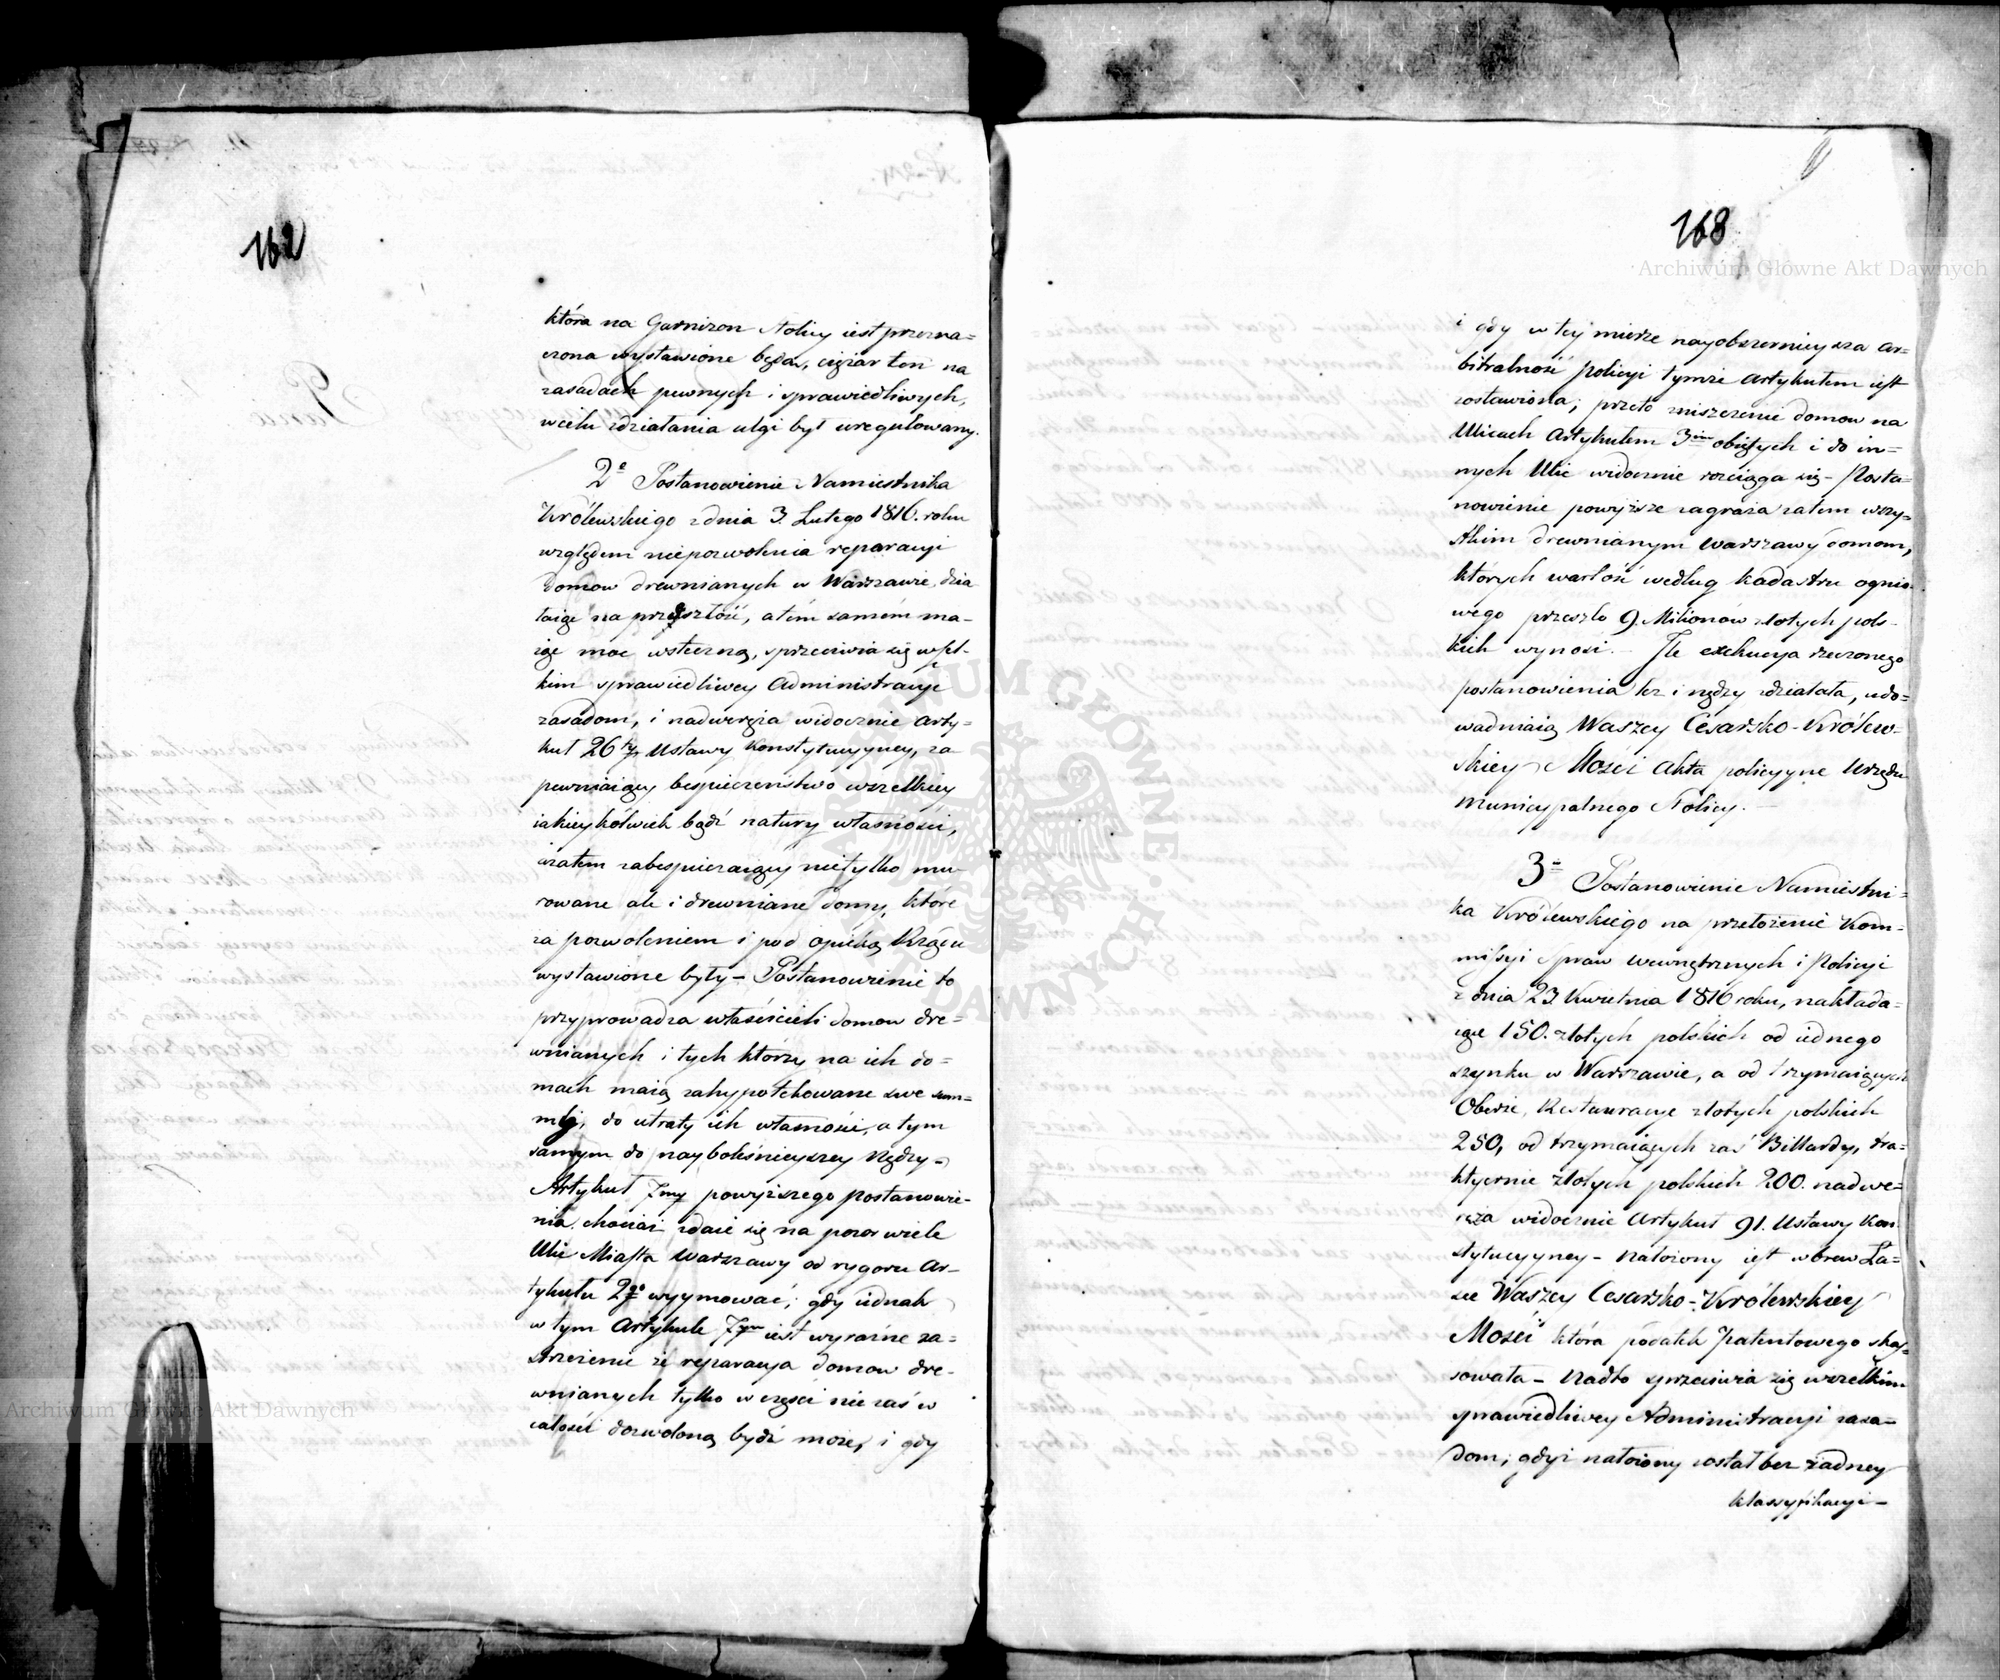 162
która na Garnizon stolicy iest przezna=
czona wystawione będą, ciężar ten na
zasadach pewnych i sprawiedliwych,
w celu zdziałania ulgi był uregulowany.
2e Postanowienie Namiestnika
Królewskiego z dnia 3. Lutego 1816. roku
względem niepozwolenia reparacyi
domow drewnianych w Warszawie, dzia
łaiąc na przeszłość, a tém samém ma-
iąc moc wsteczną, sprzeciwia się wszel-
kim sprawiedliwey Administracyi
zasadom, i nadweręża widocznie Arty-
kuł 26ty Ustawy Konstytucyyney, za
pewniaiący bespieczeństwo wszelkiey
iakieykolwiek bądź natury własności,
a zatem zabespieczaiący nietylko mu-
rowane ale i drewniane domy, które
za pozwoleniem i pod opieką Rządu
wystawione były – Postanowienie to
przyprowadza właścicieli domow dre=
wnianych i tych którzy na ich do=
mach maią zahypotekowane swe sum=
my, do utraty ich własności, a tym
samym do nayboleśnieyszey nędzy –
Artykuł 7my powyższego postanowie-
nia, chociaż zdaie się na pozor wiele
Ulic Miasta Warszawy od rygoru Ar-
tykułu 2go wyymować; gdy iednak
w tym Artykule 7ym iest wyraźne za=
strzeżenie że reparacya domow dre-
wnianych tylko w części nie zaś w
całości dozwoloną bydź może, i gdy
168
i gdy w tey mierze nayobszernieysza ar=
bitralność policyi tymże Artykułem iest
zostawiona; przeto zniszczenie domow na
Ulicach Artykułem 3im obiętych i do in=
nych Ulic widocznie rozciąga się – Posta=
nowienie powyższe zagraża zatem wszy=
stkim drewnianym Warszawy domom,
których wartość według kadastru ognio-
wego przeszło 9. Milionów złotych pols-
kich wynosi. – Ile exekucya rzeczonego
postanowienia łez i nędzy zdziałała, udo=
wadniaią Waszey Cesarsko-Królew-
skiey Mości Akta policyyne Urzędu
Municypalnego Stolicy. –
3e Postanowienie Namiestni=
ka Królewskiego na przełożenie Kom=
missyi Spraw Wewnętrznych i Policyi
z dnia 23 Kwietnia 1816 roku, nakłada=
iące 150. złotych polskich od iednego
szynku w Warszawie, a od trzymaiących
Oberże, Restauracye złotych polskich
250, od trzymaiących zaś Billardy, tra=
ktyernie złotych polskich 200. nadwe=
ręża widocznie Artykuł 91. Ustawy Kon
stytucyyney – nałożony iest wbrew Ła=
sce Waszey Cesarsko-Królewskiey
Mości która podatek Patentowego skas=
sowała – Nadto sprzeciwia się wszelkim
sprawiedliwey Administracyi zasa=
dom; gdyż nałożony został bez żadney
klassyfikacyi –
Archiwum Główne Akt Dawnych
Archiwum Główne Akt Dawnych
ARCHIWUM GŁÓWNE AKT DAWNYCH